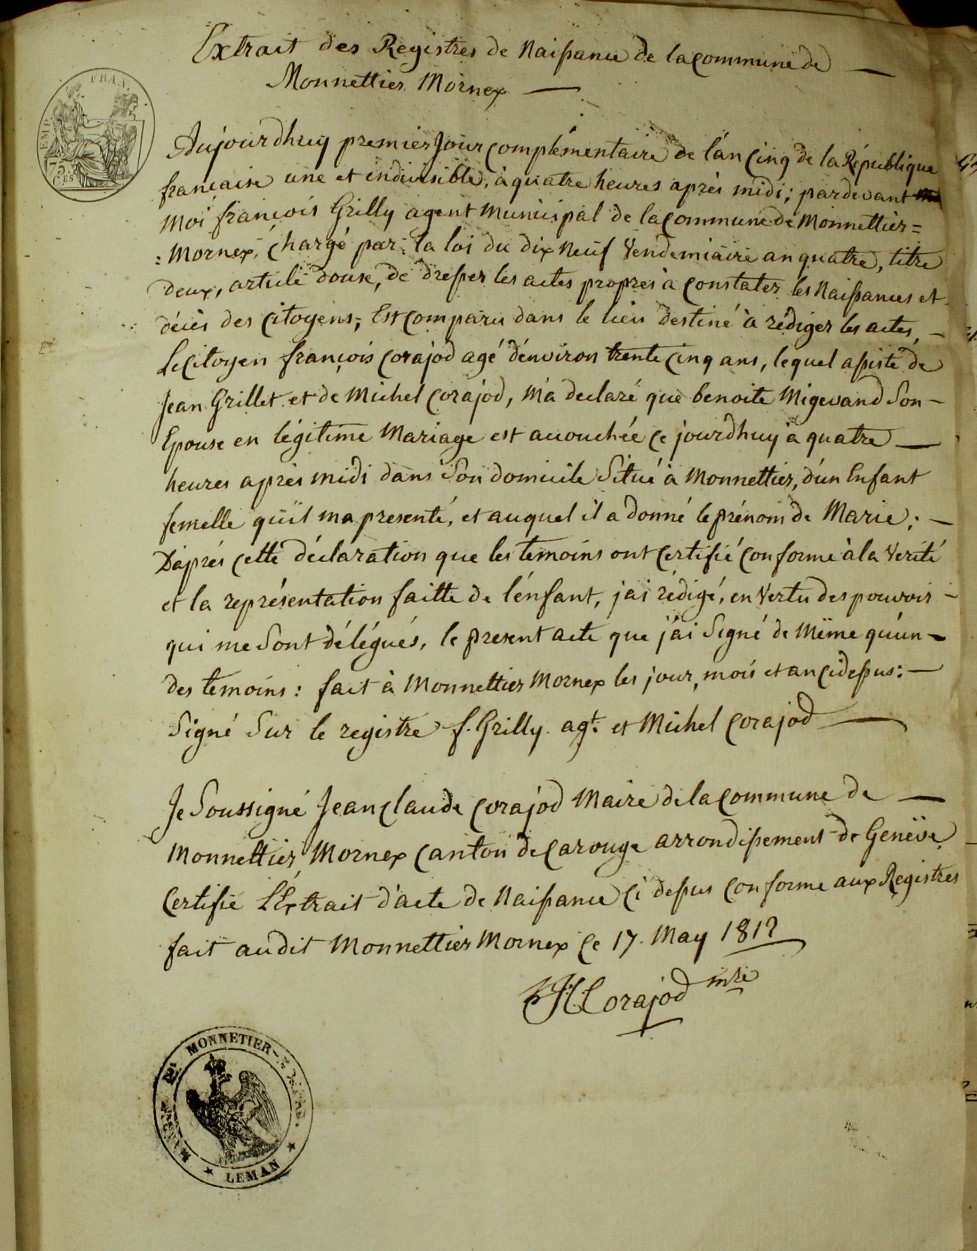 Extrait des Registres de Naissance de la Commune de
Monnettier Mornex
EMP. FRAN.
75 CES
Aujourdhuy premier Jour complémentaire de l'an Cinq de la République
francaise une et indivisible, à quatre heures après midi; pardevant
Moi françois Grilly agent Municipal de la Commune de Monnettier=
: Mornex, Chargé par la loi du dix Neuf Vendemiaire an quatre, titre
deux, article douse, de dresser les actes propres à Constater les Naissances et
décès des Citoyens; Est comparu dans le lieu destiné à rédiger les actes,
Le Citoyen françois Corajod agé d'environ trente Cinq ans, lequel assisté de
Jean Grillet et de Michel Corajod, m'a declaré que benoite Migevand Son
Epouse en légitime Mariage est accouchée ce jourdhuy à quatre
heures après midi dans Son domicile Situé à Monnettier, d'un Enfant
femelle qu'il ma presenté, et auquel il a donné le prénom de Marie;
D'après cette déclaration que les temoins ont Certifié conforme à la Verité
et la représentation faitte de l'enfant, j'ai rédigé, en Vertu des pouvoir
qui me Sont délégués, le present acte que j'ai Signé de Même qu'un
des temoins: fait à Monnettier Mornex les jour, mois et an Cidessus:
Signé Sur le registre f. Grilly agt. et Michel Corajod
Je Soussigné Jean Claude Corajod Maire de la Commune de
Monnettier Mornex Canton de Carouge arrondissement de Genève
Certifie L'Extrait d'acte de Naissance Ci dessus Conforme aux Registres
fait audit Monnettier Mornex Ce 17 May 1812
JC Corajod mre
MAIRIE DE MONNETIER-MORNEX
LEMAN